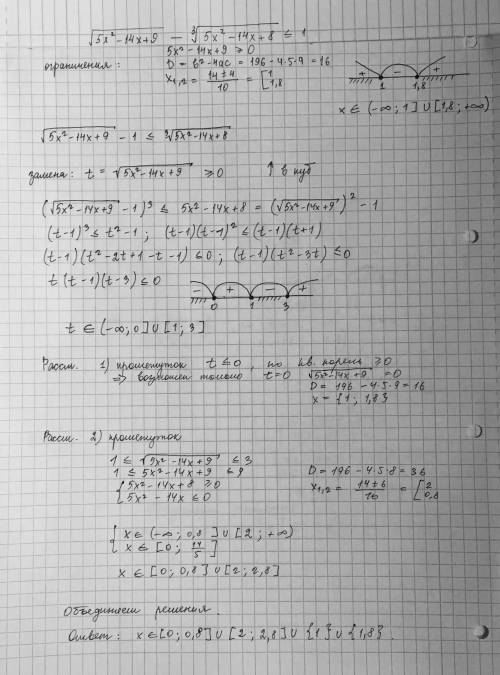 √(5x²-14x+9) - ∛(5x²-14x+8) ≤ 1
ограничения: 5x²-14x+9 ≥ 0
D = b²-4ac = 196-4·5·9 = 16
x₁,₂ = (14±4)/10 = [1 1,8
+ - + 1 1,8
x ∈ (-∞; 1] ∪ [1,8; +∞)
√(5x²-14x+9) - 1 ≤ ∛(5x²-14x+8)
замена: t = √(5x²-14x+9) ≥ 0 ↑ в куб
(√(5x²-14x+9) - 1)³ ≤ 5x²-14x+8 = (√(5x²-14x+9))² - 1
(t-1)³ ≤ t²-1; (t-1)(t-1)² ≤ (t-1)(t+1)
(t-1)(t²-2t+1-t-1) ≤ 0; (t-1)(t²-3t) ≤ 0
t(t-1)(t-3) ≤ 0
- + - + 0 1 3
t ∈ (-∞; 0] ∪ [1; 3]
Рассм. 1) промежуток t ≤ 0, но кв. корень ≥ 0
⇒ возможен только t=0 √(5x²-14x+9) = 0
D = 196-4·5·9 = 16
x = {1; 1,8}
Рассм. 2) промежуток
1 ≤ √(5x²-14x+9) ≤ 3
1 ≤ 5x²-14x+9 ≤ 9
{5x²-14x+8 ≥ 0
{5x²-14x ≤ 0
D = 196-4·5·8 = 36
x₁,₂ = (14±6)/10 = [2 0,8
{x ∈ (-∞; 0,8] ∪ [2; +∞)
{x ∈ [0; 14/5]
x ∈ [0; 0,8] ∪ [2; 2,8]
Объединяем решения.
Ответ: x ∈ [0; 0,8] ∪ [2; 2,8] ∪ {1} ∪ {1,8}.